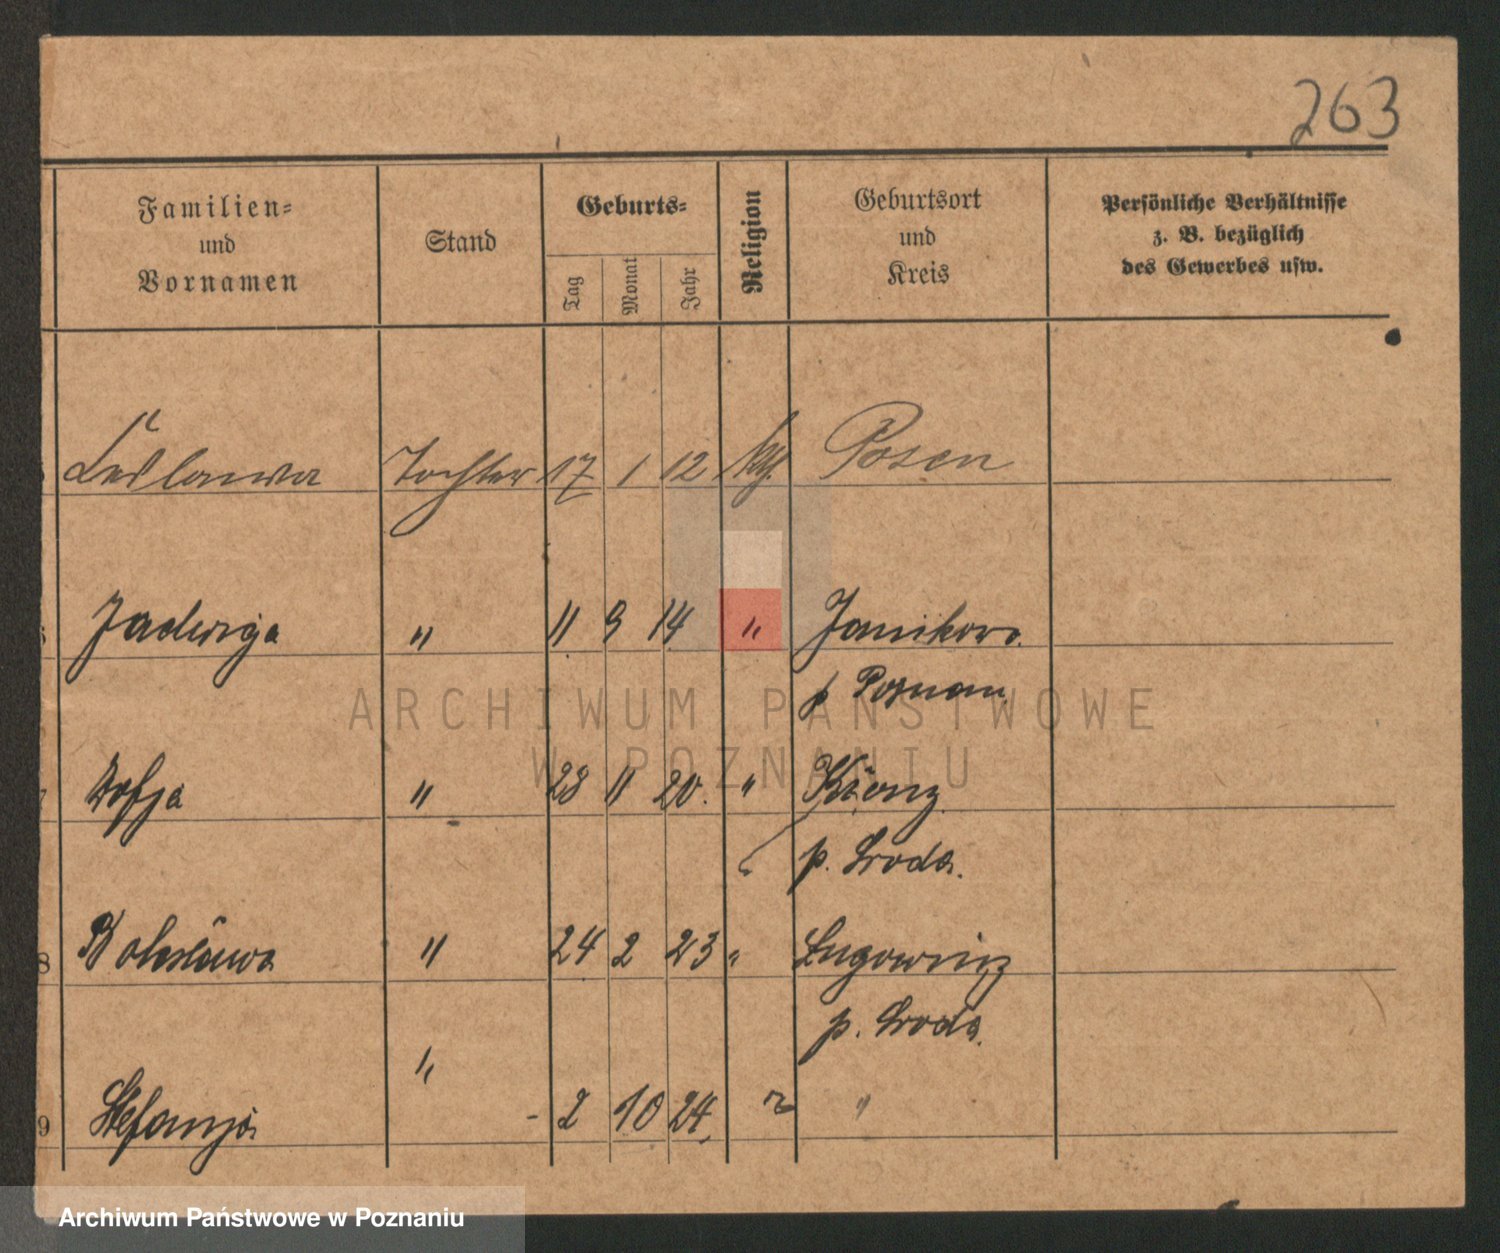 263
Familien-
und
Vornamen
Stand
Geburts-
Tag
Monat
Jahr
Religion
Geburtsort
und
Kreis
Persönliche Verhältnisse
z. B. bezüglich
des Gewerbes usw.
Tochter 17 1 12 kth. Posen
Jadwiga " 11 9 14 " Janikowo
p Poznań
Zofja " 28 11 20. " Książ
p. Środa.
8 Bolesława " 24 2 23 "
p. Środa.
9 Stefanja " - 2 10 24. "
ARCHIWUM PAŃSTWOWE
W POZNANIU
Archiwum Państwowe w Poznaniu